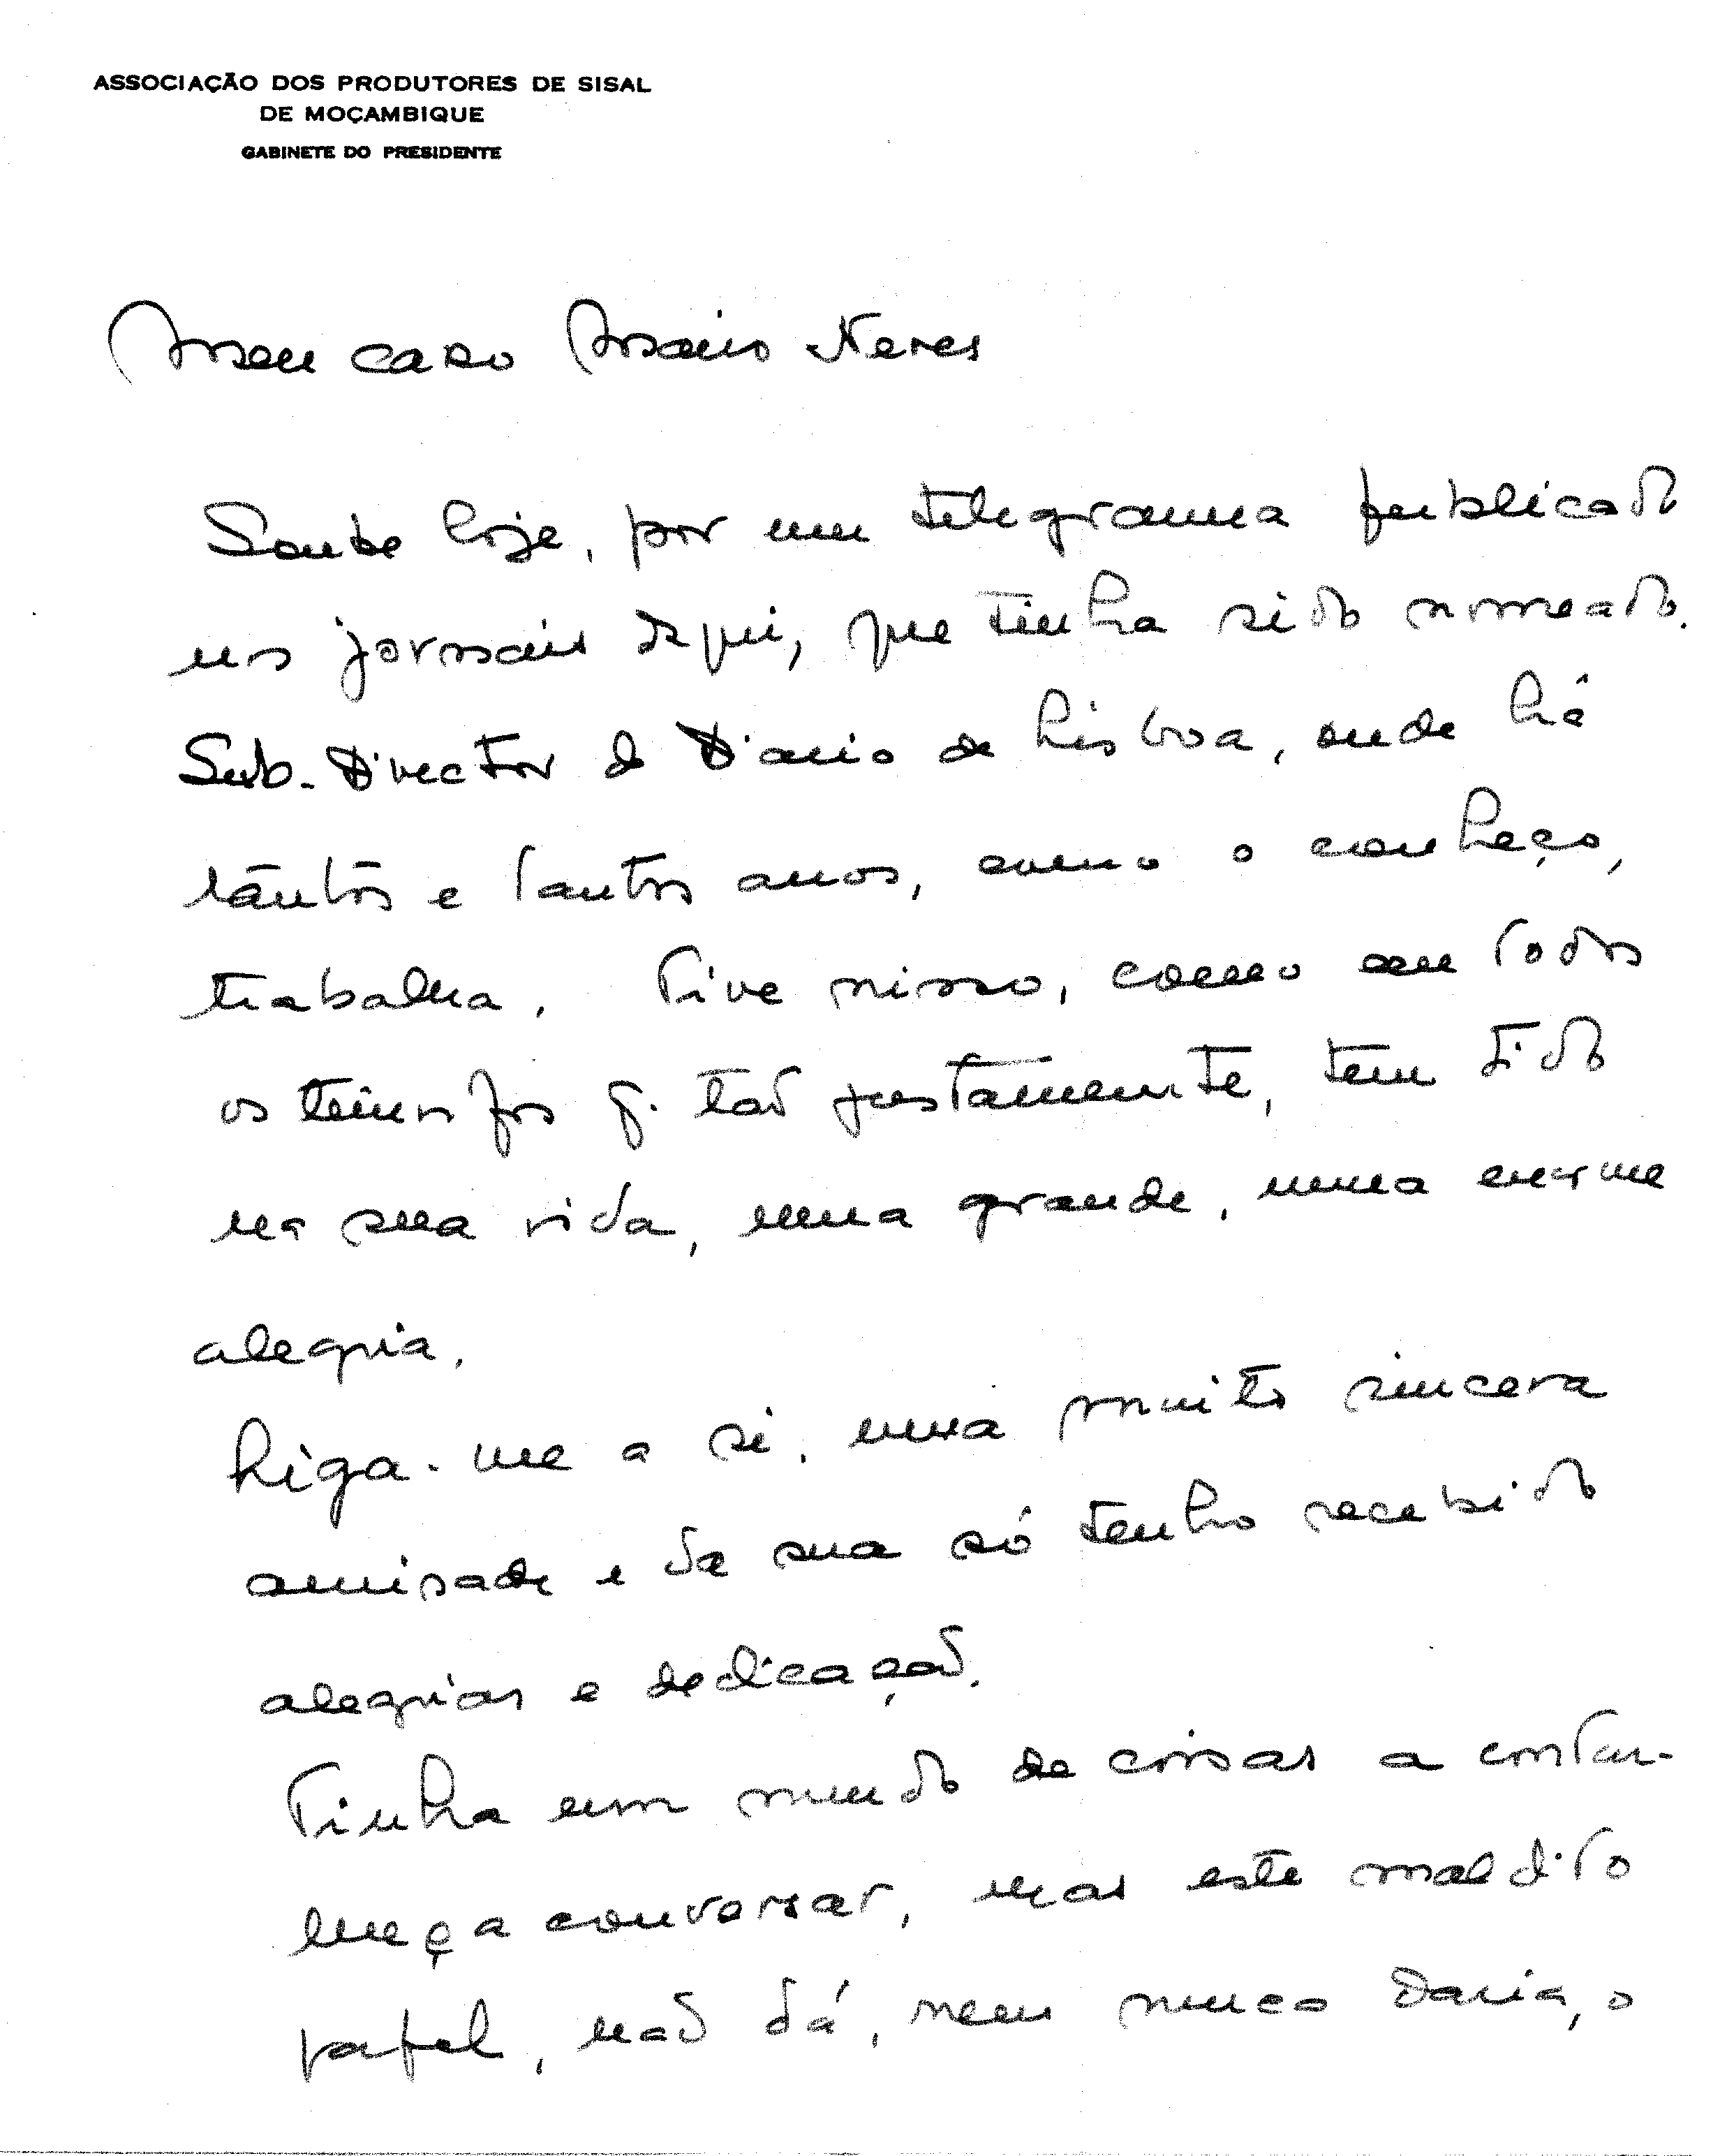 ASSOCIAÇÃO DOS PRODUTORES DE SISAL
DE MOÇAMBIQUE
GABINETE DO PRESIDENTE
Meu caro Mario Neves
Soube hoje, por um telegrama publicado
nos jornais daqui, que tinha sido nomeado
Sub-Director do Diario de Lisboa, onde há
tantos e tantos anos, como o conheço,
trabalha. Tive nisso, como em todos
os triunfos q. tão justamente, tem tido
na sua vida, uma grande, uma enorme
alegria.
Liga-me a si, uma muito sincera
amisade e da sua só tenho recebido
alegrias e dedicação.
Tinha um mundo de coisas a contar-
conversar, mas este maldito
papel, não dá, nem nunca daria, o